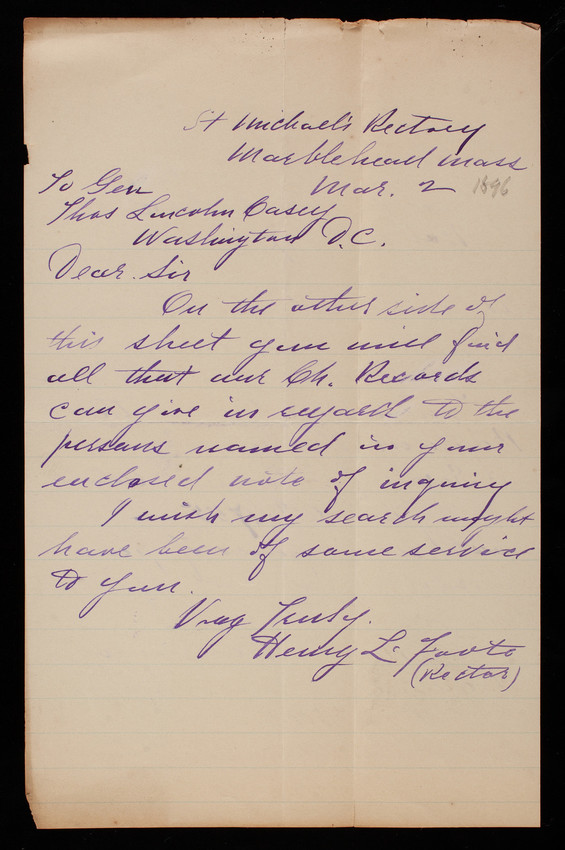 St Michael's Rectory
Marblehead Mass
Mar. 2 1896
To Gen
Thos Lincoln Casey
Washington D.C.
Dear Sir
On the other side of
this sheet you will find
all that our Ch. Records
can give in regard to the
persons named in your
enclosed note of inquiry
I wish my search might
have been of some service
to you.
Very Truly.
Henry L. Foote
(Rector)